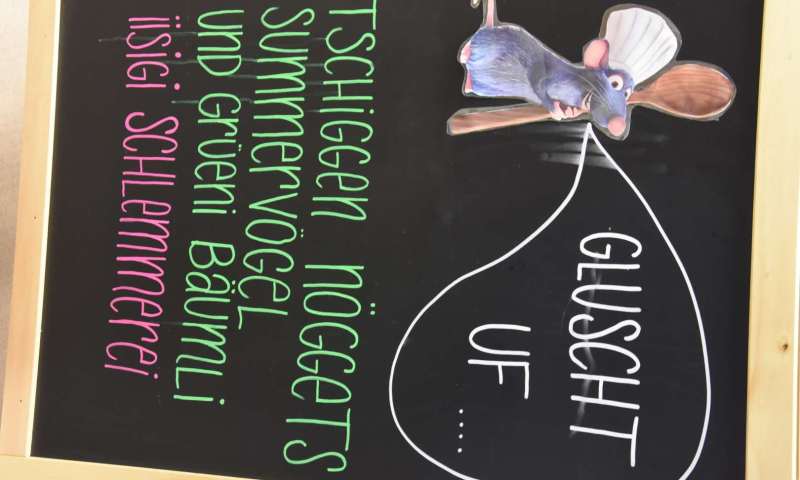 GLUSCHT
UF ....
TSCHiGGEN NÖGGETS
SUMMERVÖGEL
UND GRÜENi BÄUMLi
iiSiGi SCHLEMMEREi